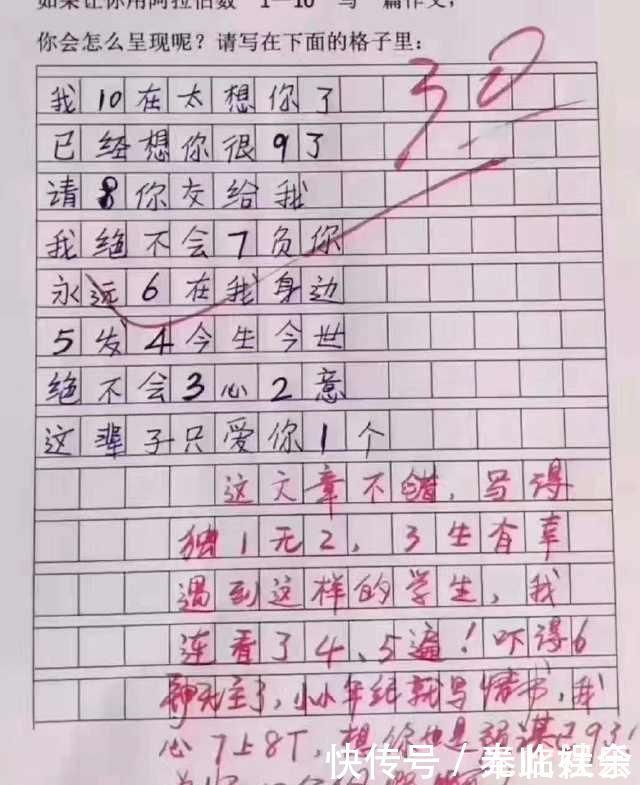 如果让你用阿拉伯数“1—10”写一篇作文,
你会怎么呈现呢?请写在下面的格子里:
30
我10在太想你了
已经想你很9了
请8你交给我
我绝不会7负你
永远6在我身边
5发4今生今世
绝不会3心2意
这辈子只爱你1个
这文章不错,写得
独1无2,3生有幸
遇到这样的学生,我
连看了4、5遍!吓得6
神无主了,小小年纪就写情书,我
心7上8下,想你也是
快传号/